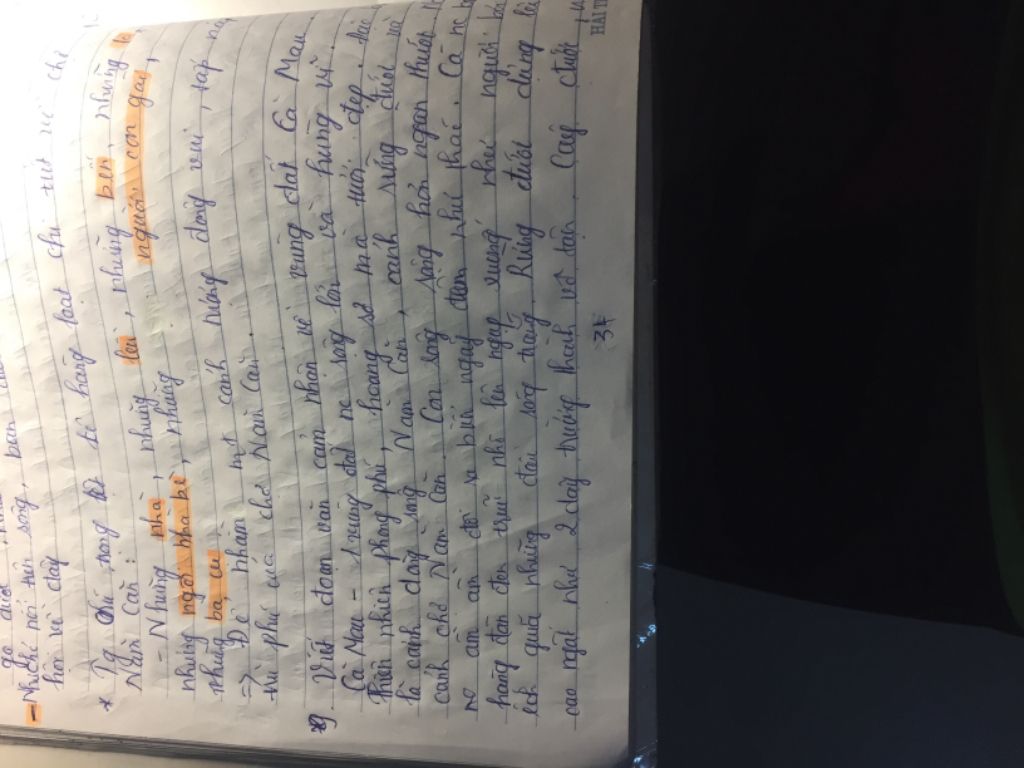 - Nhà chỉ nơi trên sông, bán
hơn về đây
* Tg chú trọng kể tê hàng loạt chi tiết về chợ
Năm Căn:
- Những nhà, những lều, những bến, những lò
những ngôi nhà bè, những người con gái,
những bà cụ
=> Để nhấn mạnh cảnh tượng đông vui, tấp nập
trù phú của chợ Năm Căn.
Viết đoạn văn cảm nhận về vùng đất Cà Mau
Cà Mau - vùng đất mẹ sông lớn và hùng vĩ.
Thiên nhiên phong phú, hoang sơ mà tươi đẹp
là cảnh dòng sông Năm Căn, cảnh rừng đước và
cảnh chợ Năm Căn. Con sông rộng hơn ngàn thước
nó ầm ầm đổ ra biển ngày đêm như thác. Cá nước
hàng đàn đen trũi nhô lên ngụp xuống như người bơi
ếch giữa những đầu sóng trắng. Rừng đước dựng lên
cao ngất như 2 dãy trường thành vô tận. Cây đước
37
HẢI TI